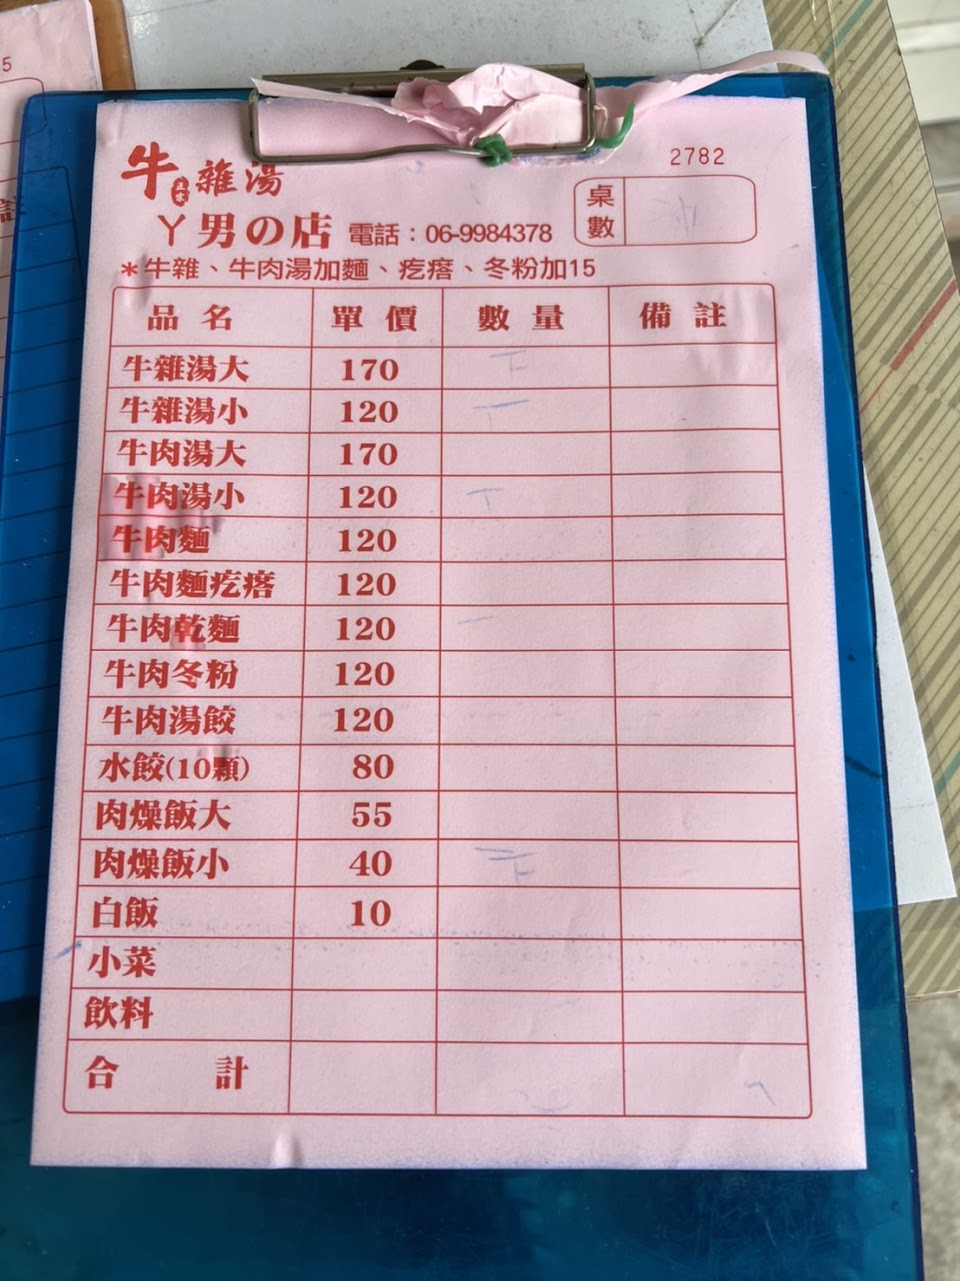 牛雜湯
正宗
2782
ㄚ男の店 電話：06-9984378
桌數
＊牛雜、牛肉湯加麵、疙瘩、冬粉加15
品名 單價 數量 備註
牛雜湯大 170
牛雜湯小 120
牛肉湯大 170
牛肉湯小 120
牛肉麵 120
牛肉麵疙瘩 120
牛肉乾麵 120
牛肉冬粉 120
牛肉湯餃 120
水餃(10顆) 80
肉燥飯大 55
肉燥飯小 40
白飯 10
小菜
飲料
合計
5